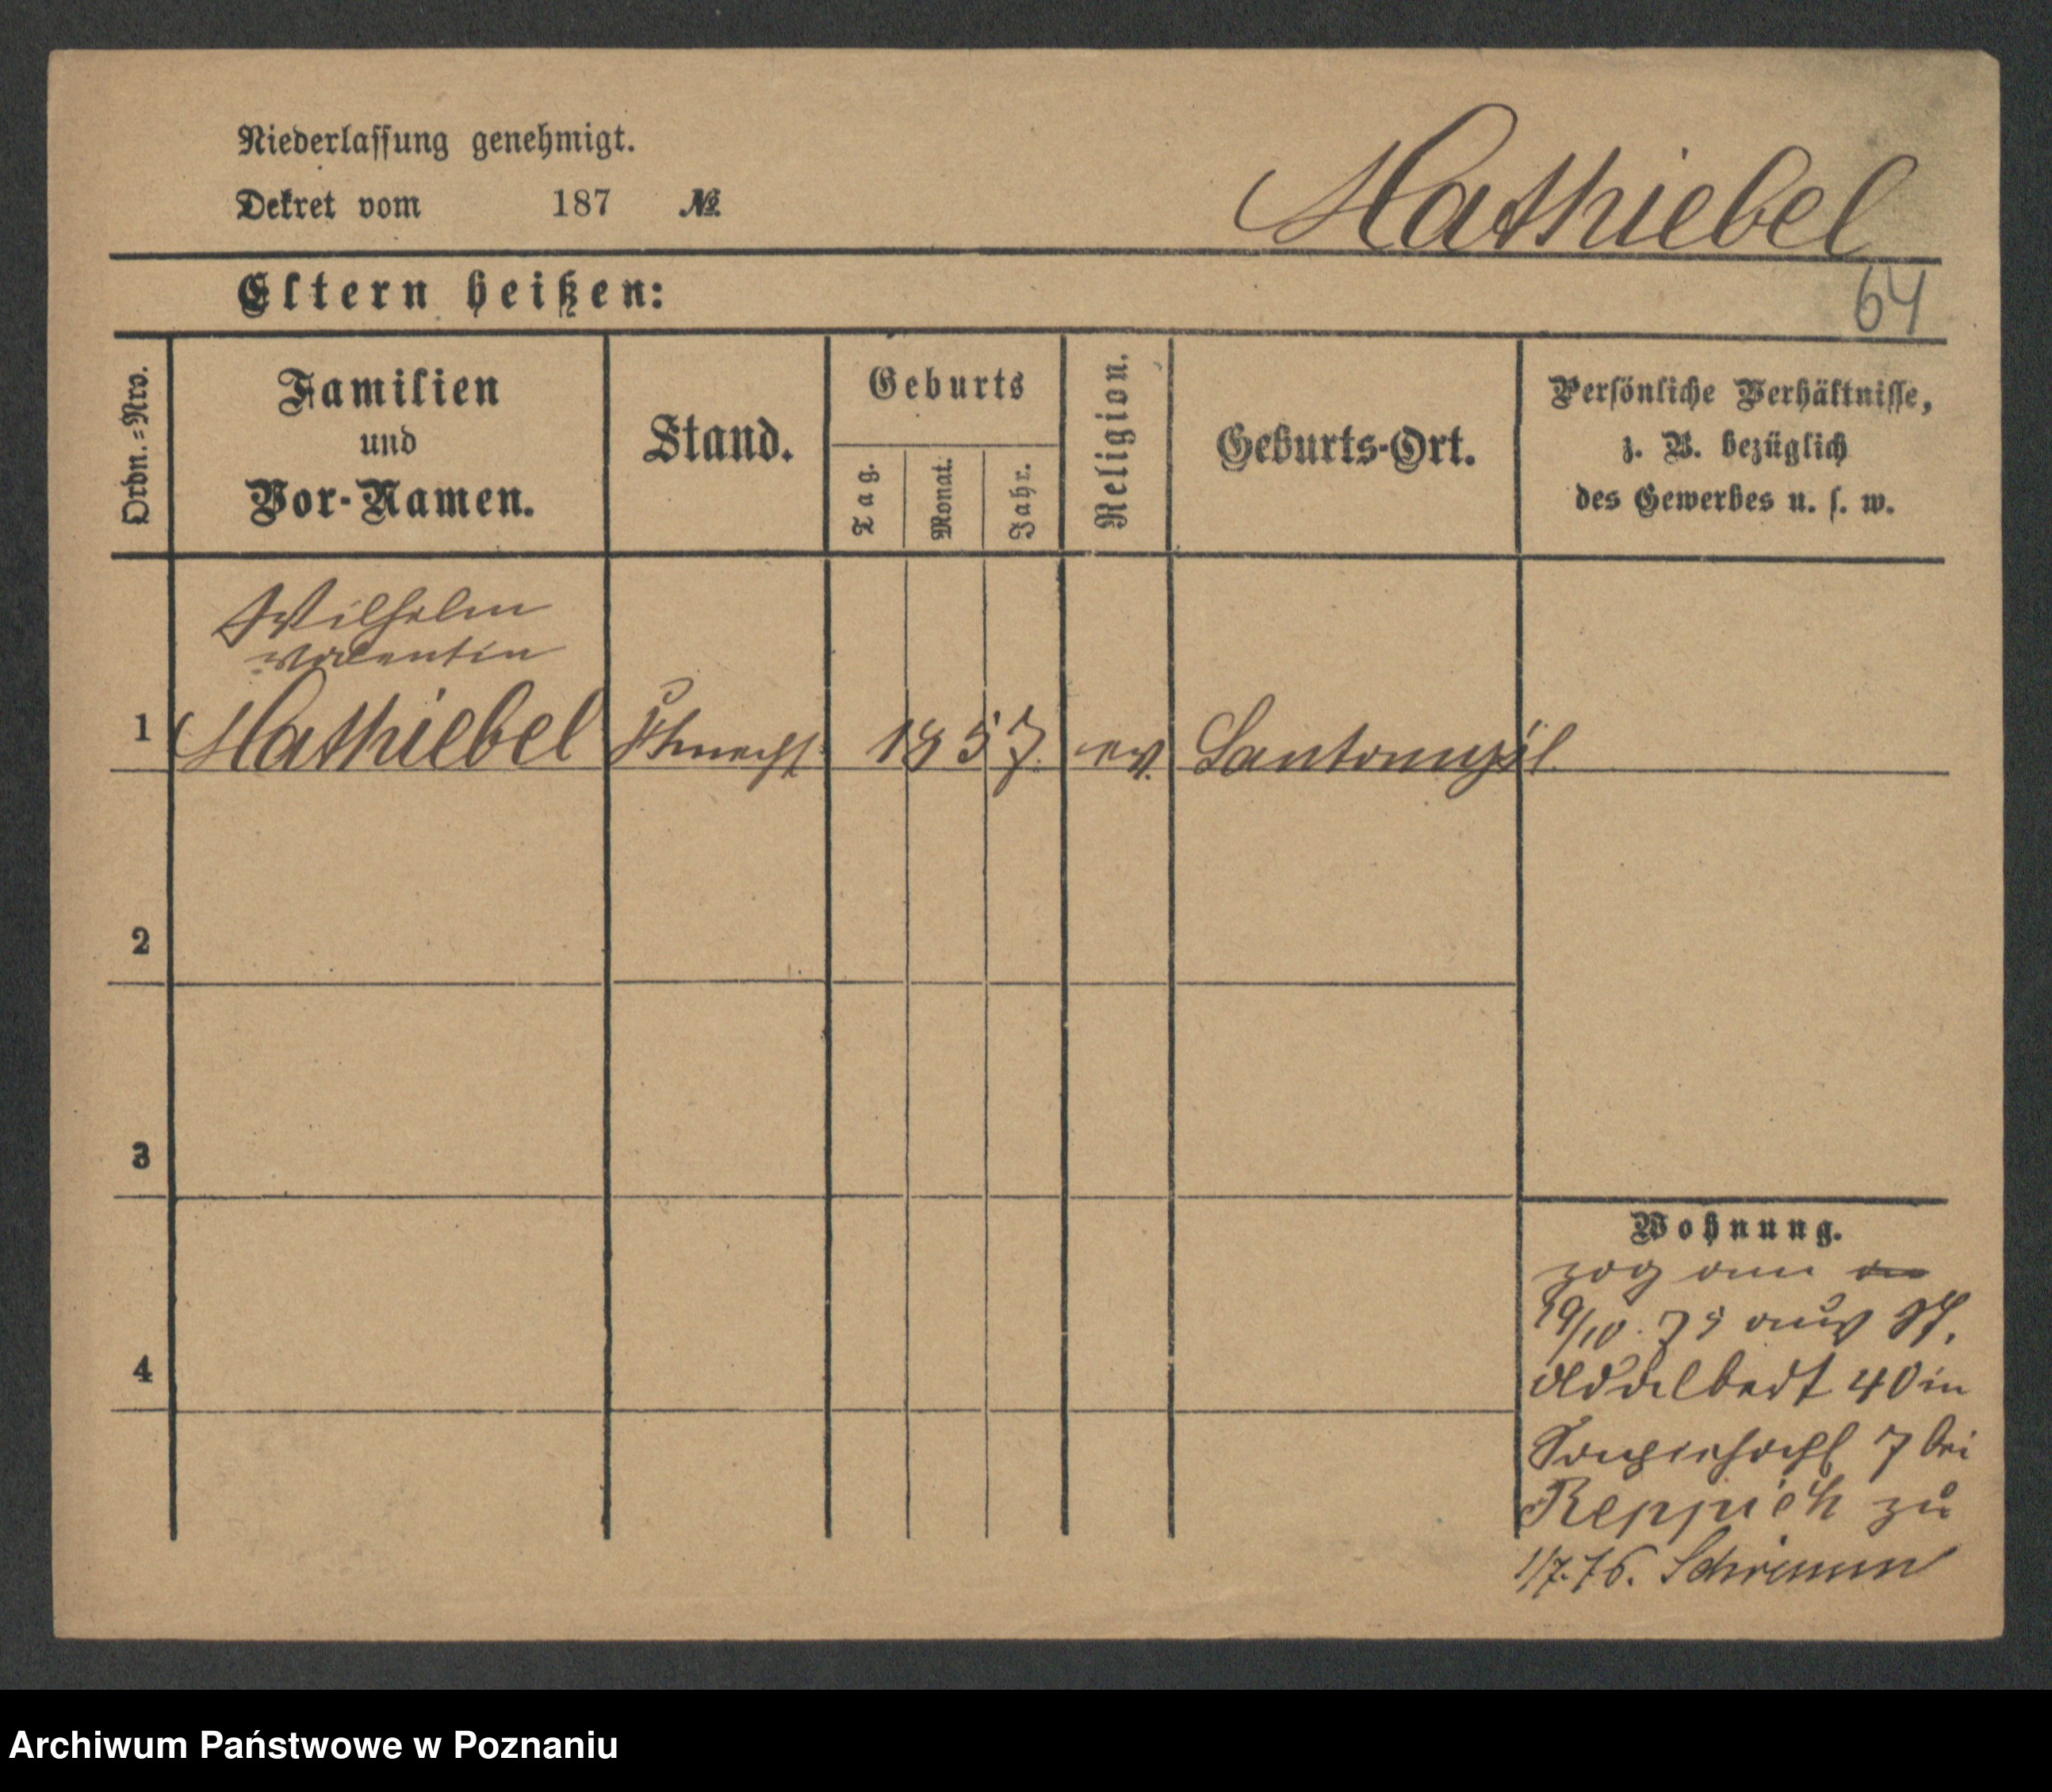 Niederlassung genehmigt.
Dekret vom 187 №
Mathiebel
Eltern heißen:
64
Ordn.-Nro.
Familien
und
Vor-Namen.
Stand.
Geburts
Tag.
Monat.
Jahr.
Religion.
Geburts-Ort.
Persönliche Verhältnisse,
z. B. bezüglich
des Gewerbes u. s. w.
Wilhelm
Valentin
1 Mathiebel 1857. ev. Santomysl.
2
3
4
Wohnung.
zog am
19/10. 75 aus St.
Adalbert 40 in
7 bei
Reppich zu
1/7.76. Schrimm
Archiwum Państwowe w Poznaniu